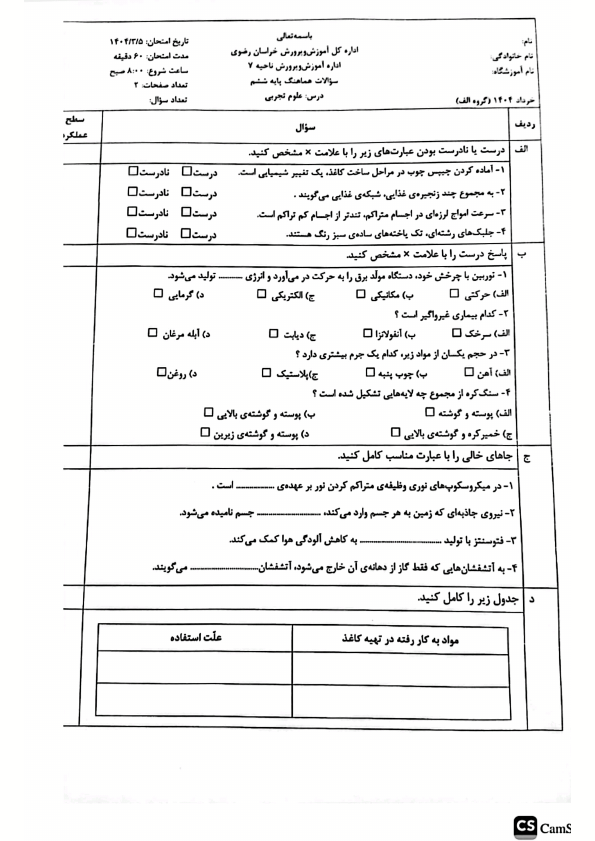 باسمه‌تعالی
اداره کل آموزش‌وپرورش خراسان رضوی
اداره آموزش‌وپرورش ناحیه ۷
سؤالات هماهنگ پایه ششم
درس: علوم تجربی
نام:
نام خانوادگی:
نام آموزشگاه:
خرداد ۱۴۰۴ (گروه الف)
تاریخ امتحان: ۱۴۰۴/۳/۵
مدت امتحان: ۶۰ دقیقه
ساعت شروع: ۸:۰۰ صبح
تعداد صفحات: ۲
تعداد سؤال:
ردیف سؤال سطح
عملکرد
الف درست یا نادرست بودن عبارت‌های زیر را با علامت × مشخص کنید.
۱- آماده کردن چیپس چوب در مراحل ساخت کاغذ، یک تغییر شیمیایی است. درست□ نادرست□
۲- به مجموع چند زنجیره‌ی غذایی، شبکه‌ی غذایی می‌گویند. درست□ نادرست□
۳- سرعت امواج لرزه‌ای در اجسام متراکم، تندتر از اجسام کم تراکم است. درست□ نادرست□
۴- جلبک‌های رشته‌ای، تک یاخته‌های ساده‌ی سبز رنگ هستند. درست□ نادرست□
ب پاسخ درست را با علامت × مشخص کنید.
۱- توربین با چرخش خود، دستگاه مولّد برق را به حرکت در می‌آورد و انرژی .......... تولید می‌شود.
الف) حرکتی □ ب) مکانیکی □ ج) الکتریکی □ د) گرمایی □
۲- کدام بیماری غیرواگیر است ؟
الف) سرخک □ ب) آنفولانزا □ ج) دیابت □ د) آبله مرغان □
۳- در حجم یکسان از مواد زیر، کدام یک جرم بیشتری دارد ؟
الف) آهن □ ب) چوب پنبه □ ج)پلاستیک □ د) روغن□
۴- سنگ‌کره از مجموع چه لایه‌هایی تشکیل شده است ؟
الف) پوسته و گوشته □ ب) پوسته و گوشته‌ی بالایی □
ج) خمیرکره و گوشته‌ی بالایی □ د) پوسته و گوشته‌ی زیرین □
ج جاهای خالی را با عبارت مناسب کامل کنید.
۱- در میکروسکوپ‌های نوری وظیفه‌ی متراکم کردن نور بر عهده‌ی ................ است .
۲- نیروی جاذبه‌ای که زمین به هر جسم وارد می‌کند، ........................ جسم نامیده می‌شود.
۳- فتوسنتز با تولید ............................ به کاهش آلودگی هوا کمک می‌کند.
۴- به آتشفشان‌هایی که فقط گاز از دهانه‌ی آن خارج می‌شود، آتشفشان........................ می‌گویند.
د جدول زیر را کامل کنید.
مواد به کار رفته در تهیه کاغذ علّت استفاده
CS CamS